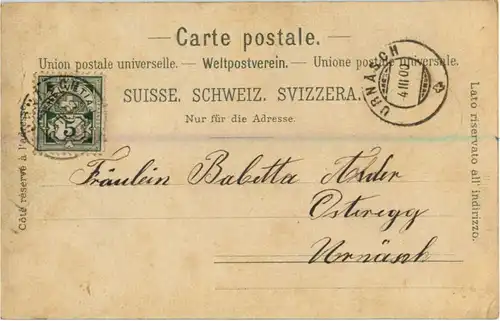 Carte postale.
Union postale universelle. — Weltpostverein. — Unione postale universale.
SUISSE. SCHWEIZ. SVIZZERA.
Nur für die Adresse.
Côté réservé à l'adresse.
Lato riservato all' indirizzo.
HELVETIA
5
URNÄSCH
4 III 00
Fräulein Babetta Alder
Osteregg
Urnäsch